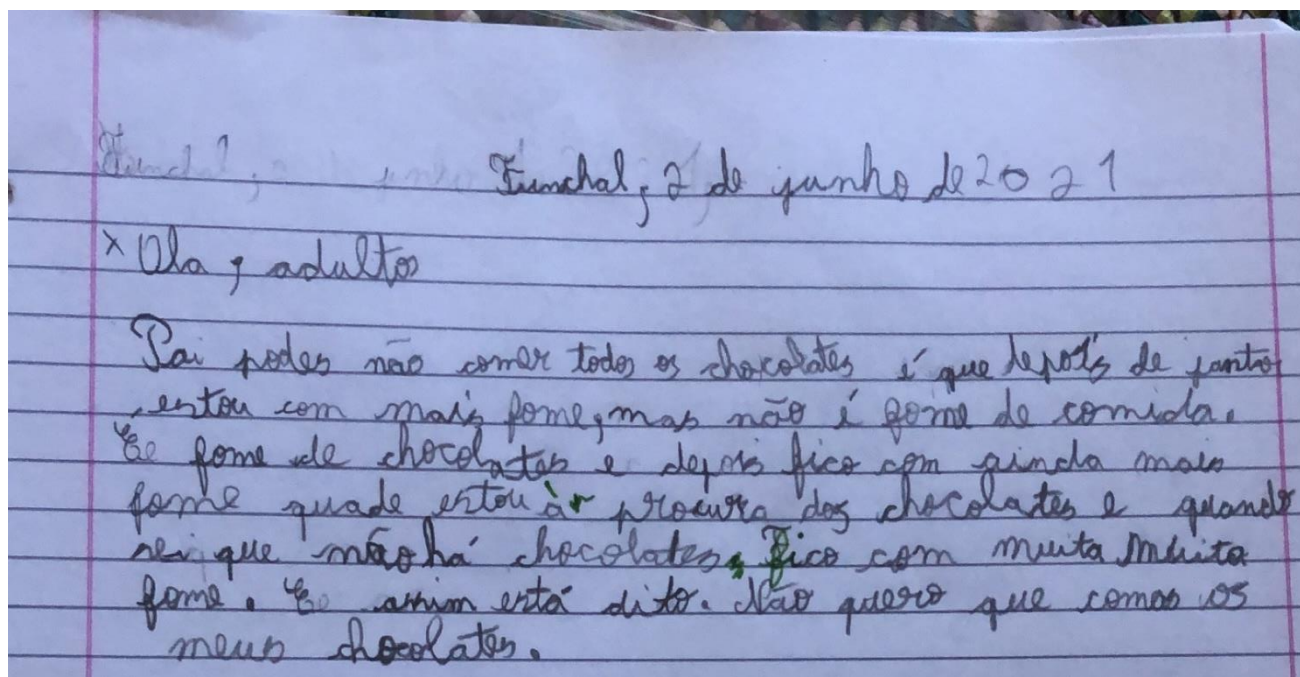 Funchal, 2 de junho de 2021
x Ola, adultos
Pai podes não comer todos os chocolates é que depois de janto
, estou com mais fome, mas não é fome de comida.
É fome de chocolates e depois fico com ainda mais
fome quade estou à procura dos chocolates e quando
sei que não há chocolates, fico com muita muita
fome. E assim está dito. Não quero que comas os
meus chocolates.